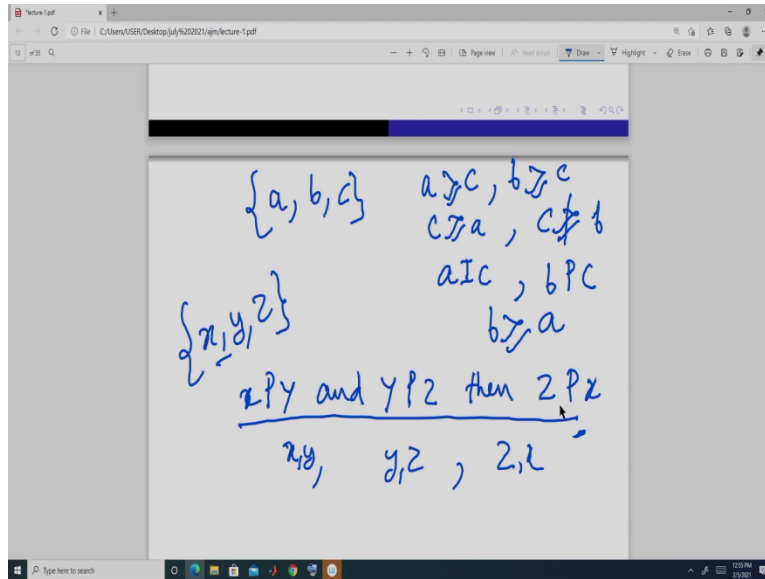 *lecture-1.pdf
File | C:/Users/USER/Desktop/july%202021/ajm/lecture-1.pdf
13 of 33
Page view | Read aloud | Draw Highlight Erase
{a, b, c} a ≽ c, b ≽ c
c ≽ a, c ⋡ b
aIc, bPc
b ≽ a
{x, y, z}
xPy and yPz then zPx
x,y, y,z, z,x
Type here to search
12:55 PM
2/5/2021